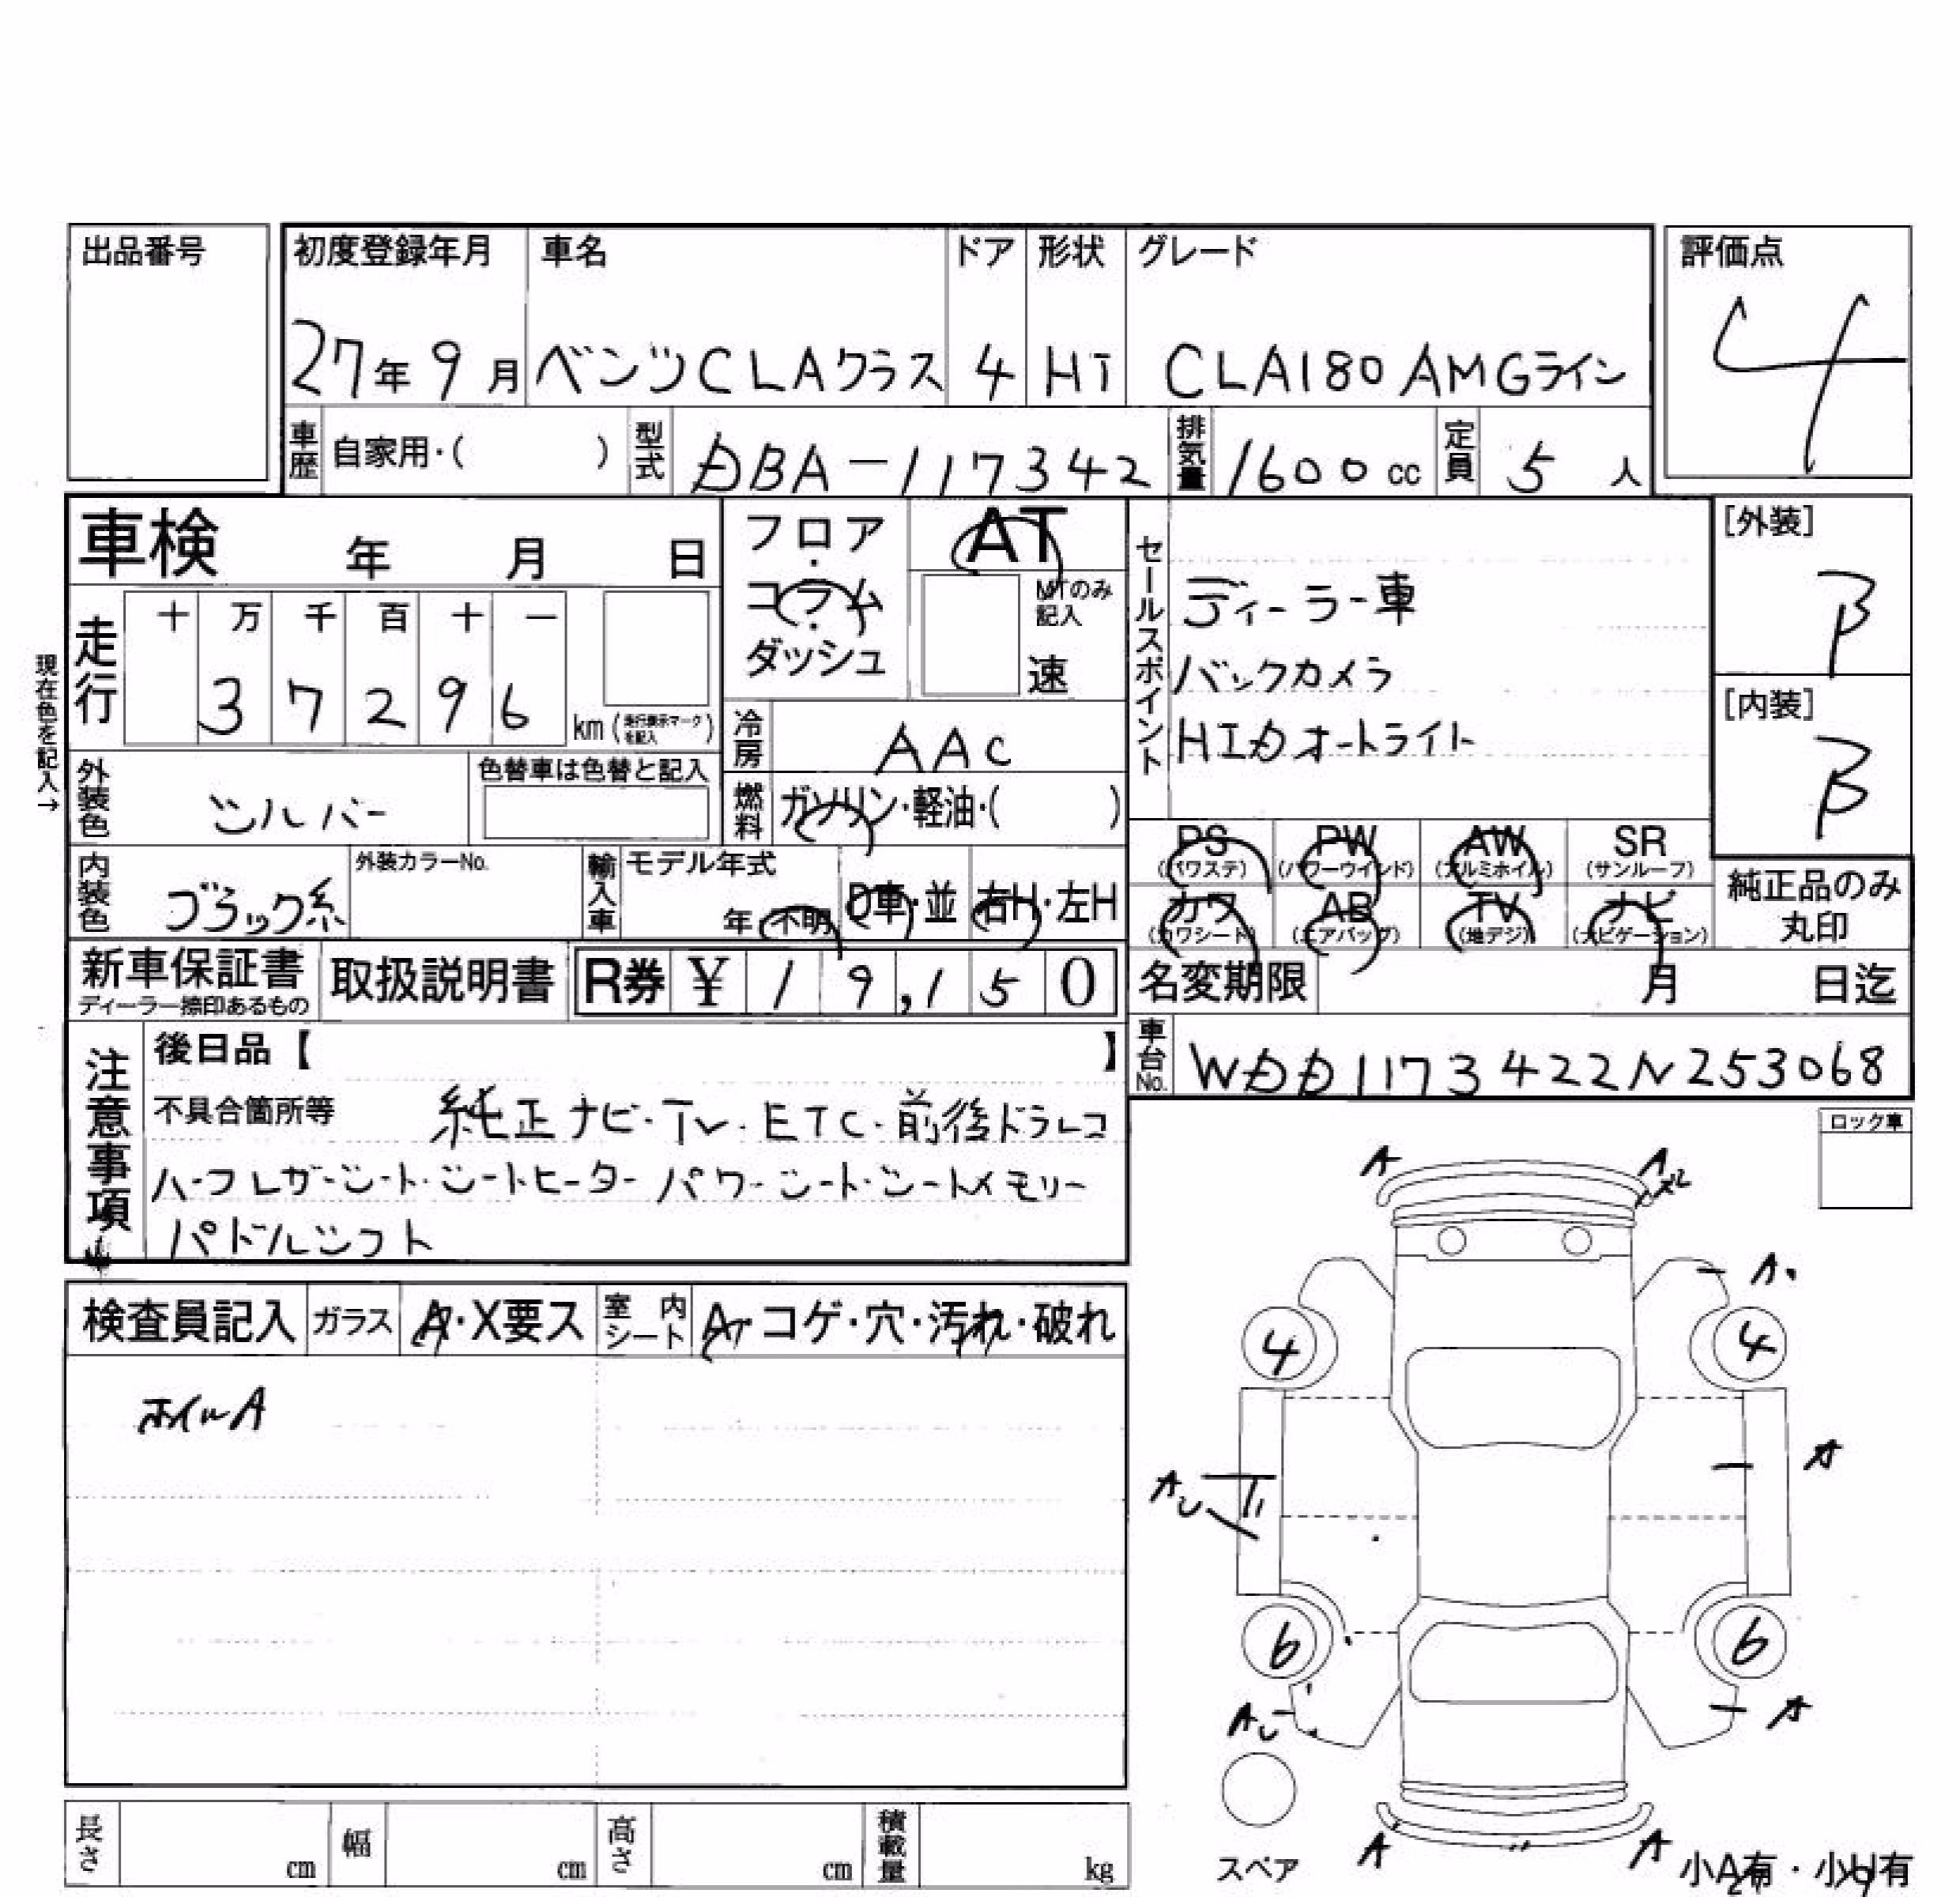 出品番号
初度登録年月 車名 ドア 形状 グレード 評価点
27年9月 ベンツCLAクラス 4 HT CLA180 AMGライン 4
車歴 自家用・( ) 型式 DBA-117342 排気量 1600cc 定員 5人
車検 年 月 日
フロア・コラム・ダッシュ AT
MTのみ記入 速
セールスポイント
ディーラー車
バックカメラ
HIDオートライト
[外装] B
[内装] B
現在色を記入→
走行 十 万 千 百 十 一
3 7 2 9 6 km (走行表示マークを記入)
冷房 AAC
外装色 シルバー 色替車は色替と記入
燃料 ガソリン・軽油・( )
PS (パワステ) PW (パワーウインド) AW (アルミホイル) SR (サンルーフ)
カワ (カワシート) AB (エアバッグ) TV (地デジ) ナビ (ナビゲーション)
純正品のみ丸印
内装色 ブラック系 外装カラーNo. 輸入車 モデル年式 年 不明 D車・並 右H・左H
新車保証書 ディーラー捺印あるもの 取扱説明書 R券 ¥ 19,150
名変期限 月 日迄
車台No. WDD1173422N253068
注意事項
後日品【 】
不具合箇所等 純正ナビ・TV・ETC・前後ドラレコ
ハーフレザーシート・シートヒーター パワーシート・シートメモリー
パドルシフト
ロック車
検査員記入 ガラス A・X要ス 室内シート A・コゲ・穴・汚れ・破れ
ホイルA
A A
A
4 4
A
AU
6 6
AU A
スペア
A A
小A有・小U有
長さ cm 幅 cm 高さ cm 積載量 kg